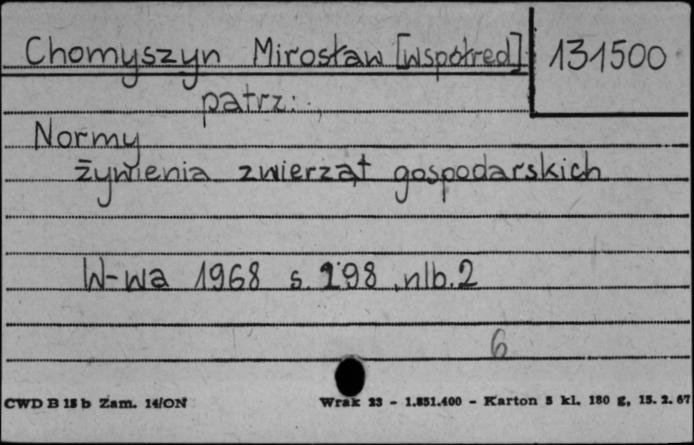 Chomyszyn Mirosław [współred] 131500
patrz:
Normy
żywienia zwierząt gospodarskich
W-wa 1968 s. 198, nlb. 2
6
CWD B 15 b Zam. 14/ON Wrak 23 - 1.851.400 - Karton 5 kl. 180 g, 15. 2. 67